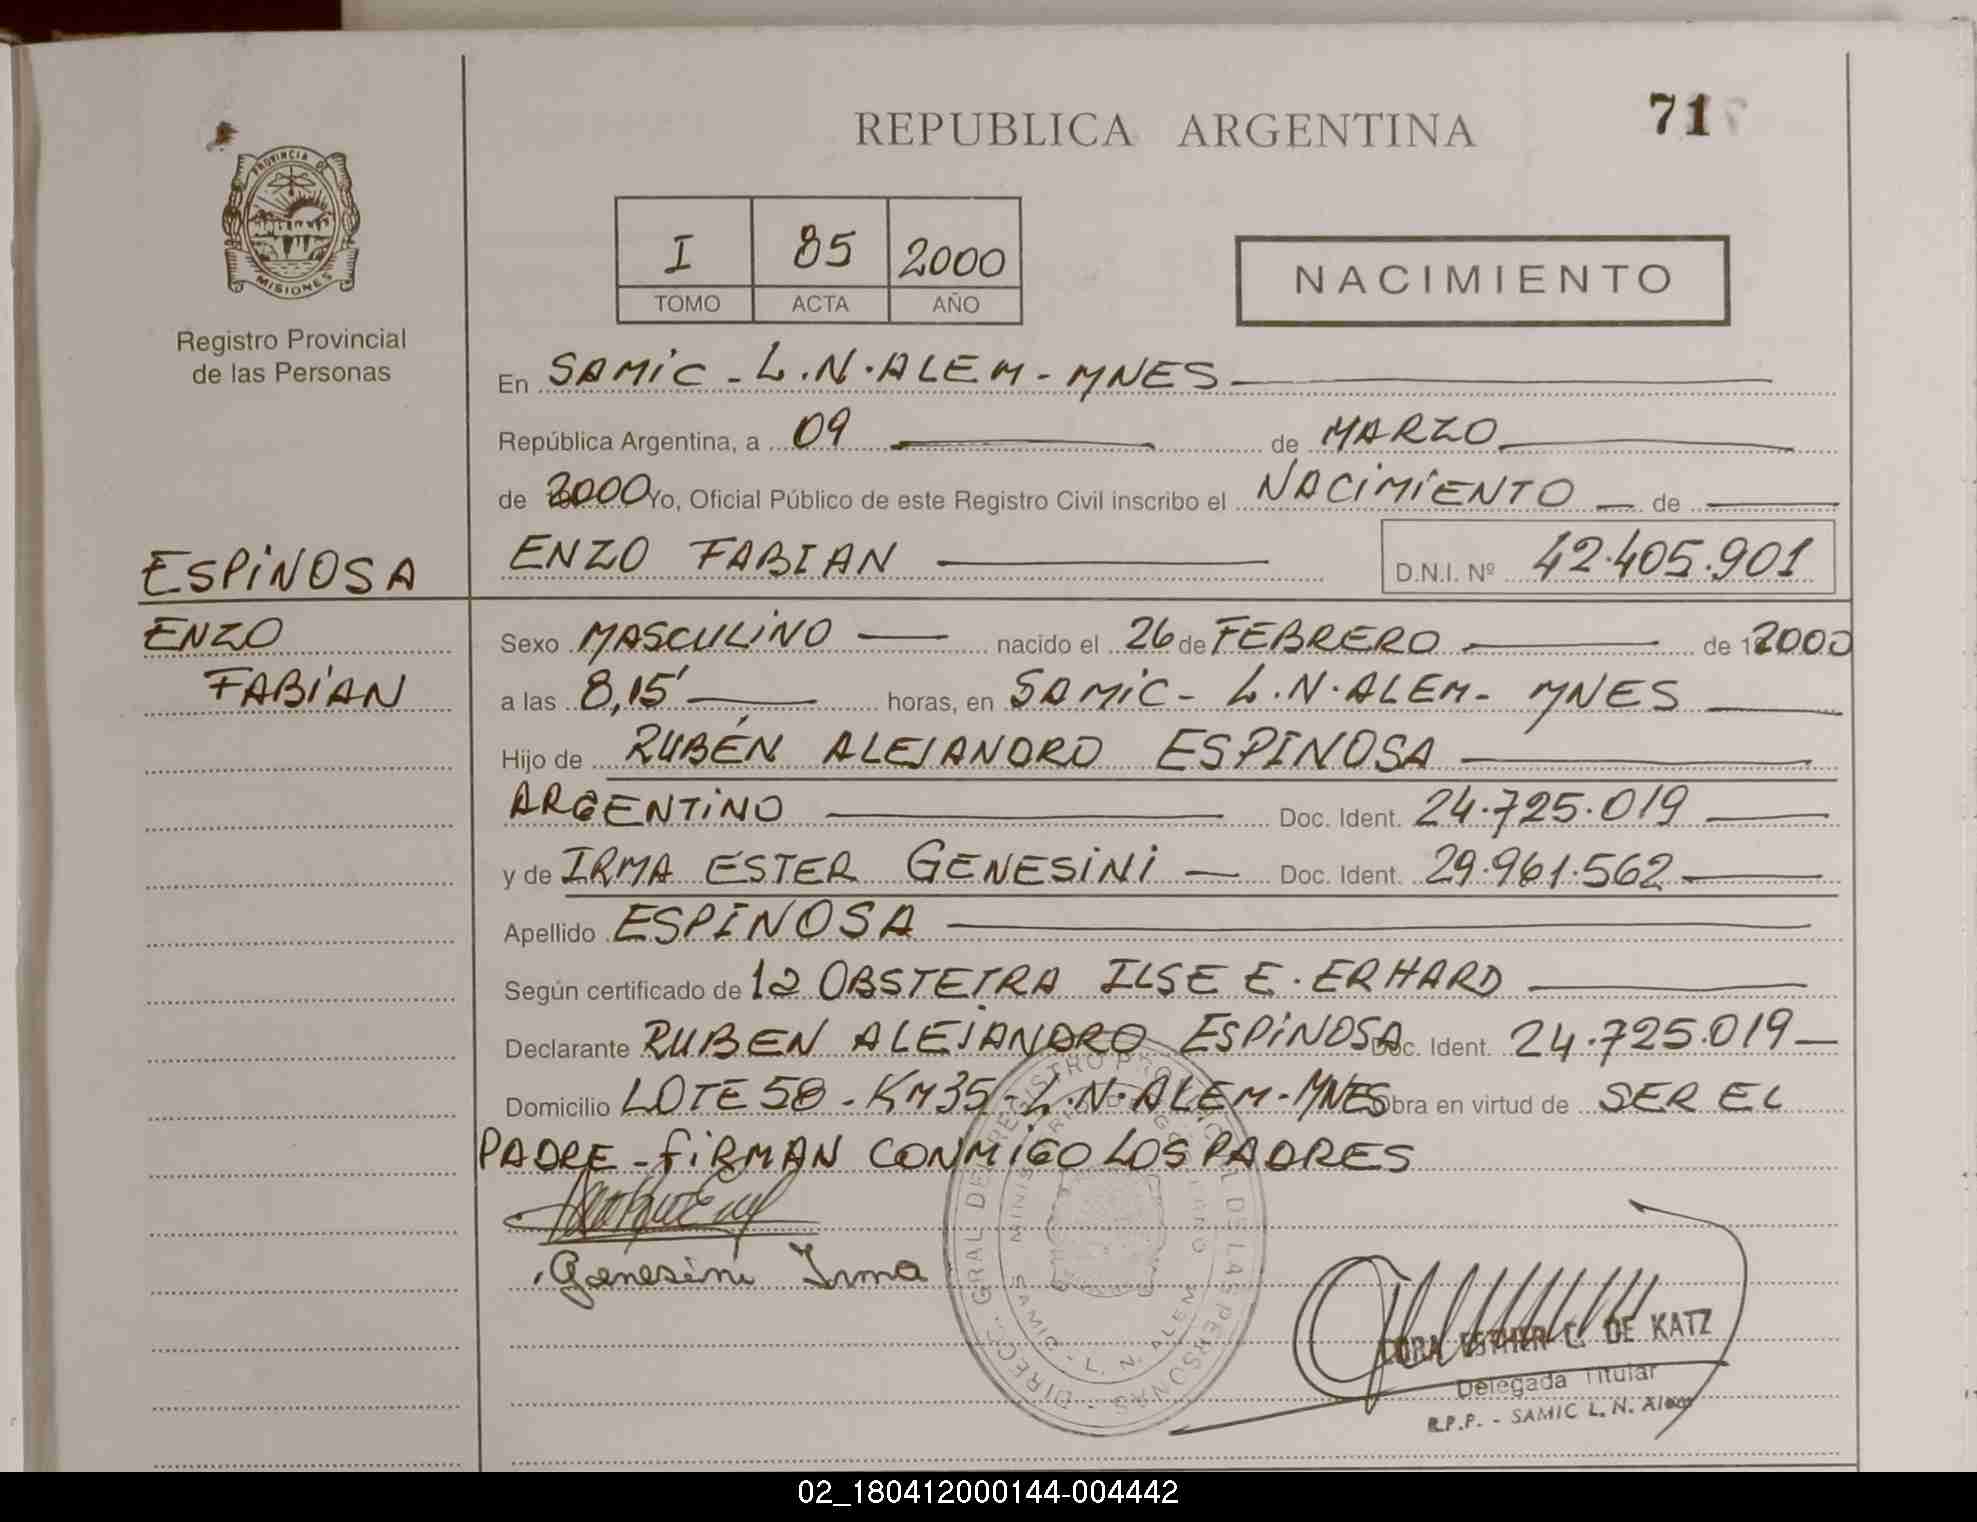 REPUBLICA ARGENTINA
71
PROVINCIA DE
MISIONES
Registro Provincial
de las Personas
I 85 2000
TOMO ACTA AÑO
NACIMIENTO
En SAMIC - L.N. ALEM - MNES
República Argentina, a 09 de MARZO
de 2000 Yo, Oficial Público de este Registro Civil inscribo el NACIMIENTO de
ESPINOSA
ENZO FABIAN D.N.I. Nº 42.405.901
ENZO
FABIAN
Sexo MASCULINO nacido el 26 de FEBRERO de 2000
a las 8,15' horas, en SAMIC - L.N. ALEM - MNES
Hijo de RUBÉN ALEJANDRO ESPINOSA
ARGENTINO Doc. Ident. 24.725.019
y de IRMA ESTER GENESINI Doc. Ident. 29.961.562
Apellido ESPINOSA
Según certificado de la OBSTETRA ILSE E. ERHARD
Declarante RUBEN ALEJANDRO ESPINOSA Doc. Ident. 24.725.019
Domicilio LOTE 58 - KM 35 - L.N. ALEM - MNES Obra en virtud de SER EL
PADRE - FIRMAN CONMIGO LOS PADRES
Genesini Irma
DIREC. GRAL DE REGISTRO PROVINCIAL DE LAS PERSONAS
SAMIC - L. N. ALEM
ESTHER C. DE KATZ
Delegada Titular
R.P.P. - SAMIC L. N. Alem
02_180412000144-004442